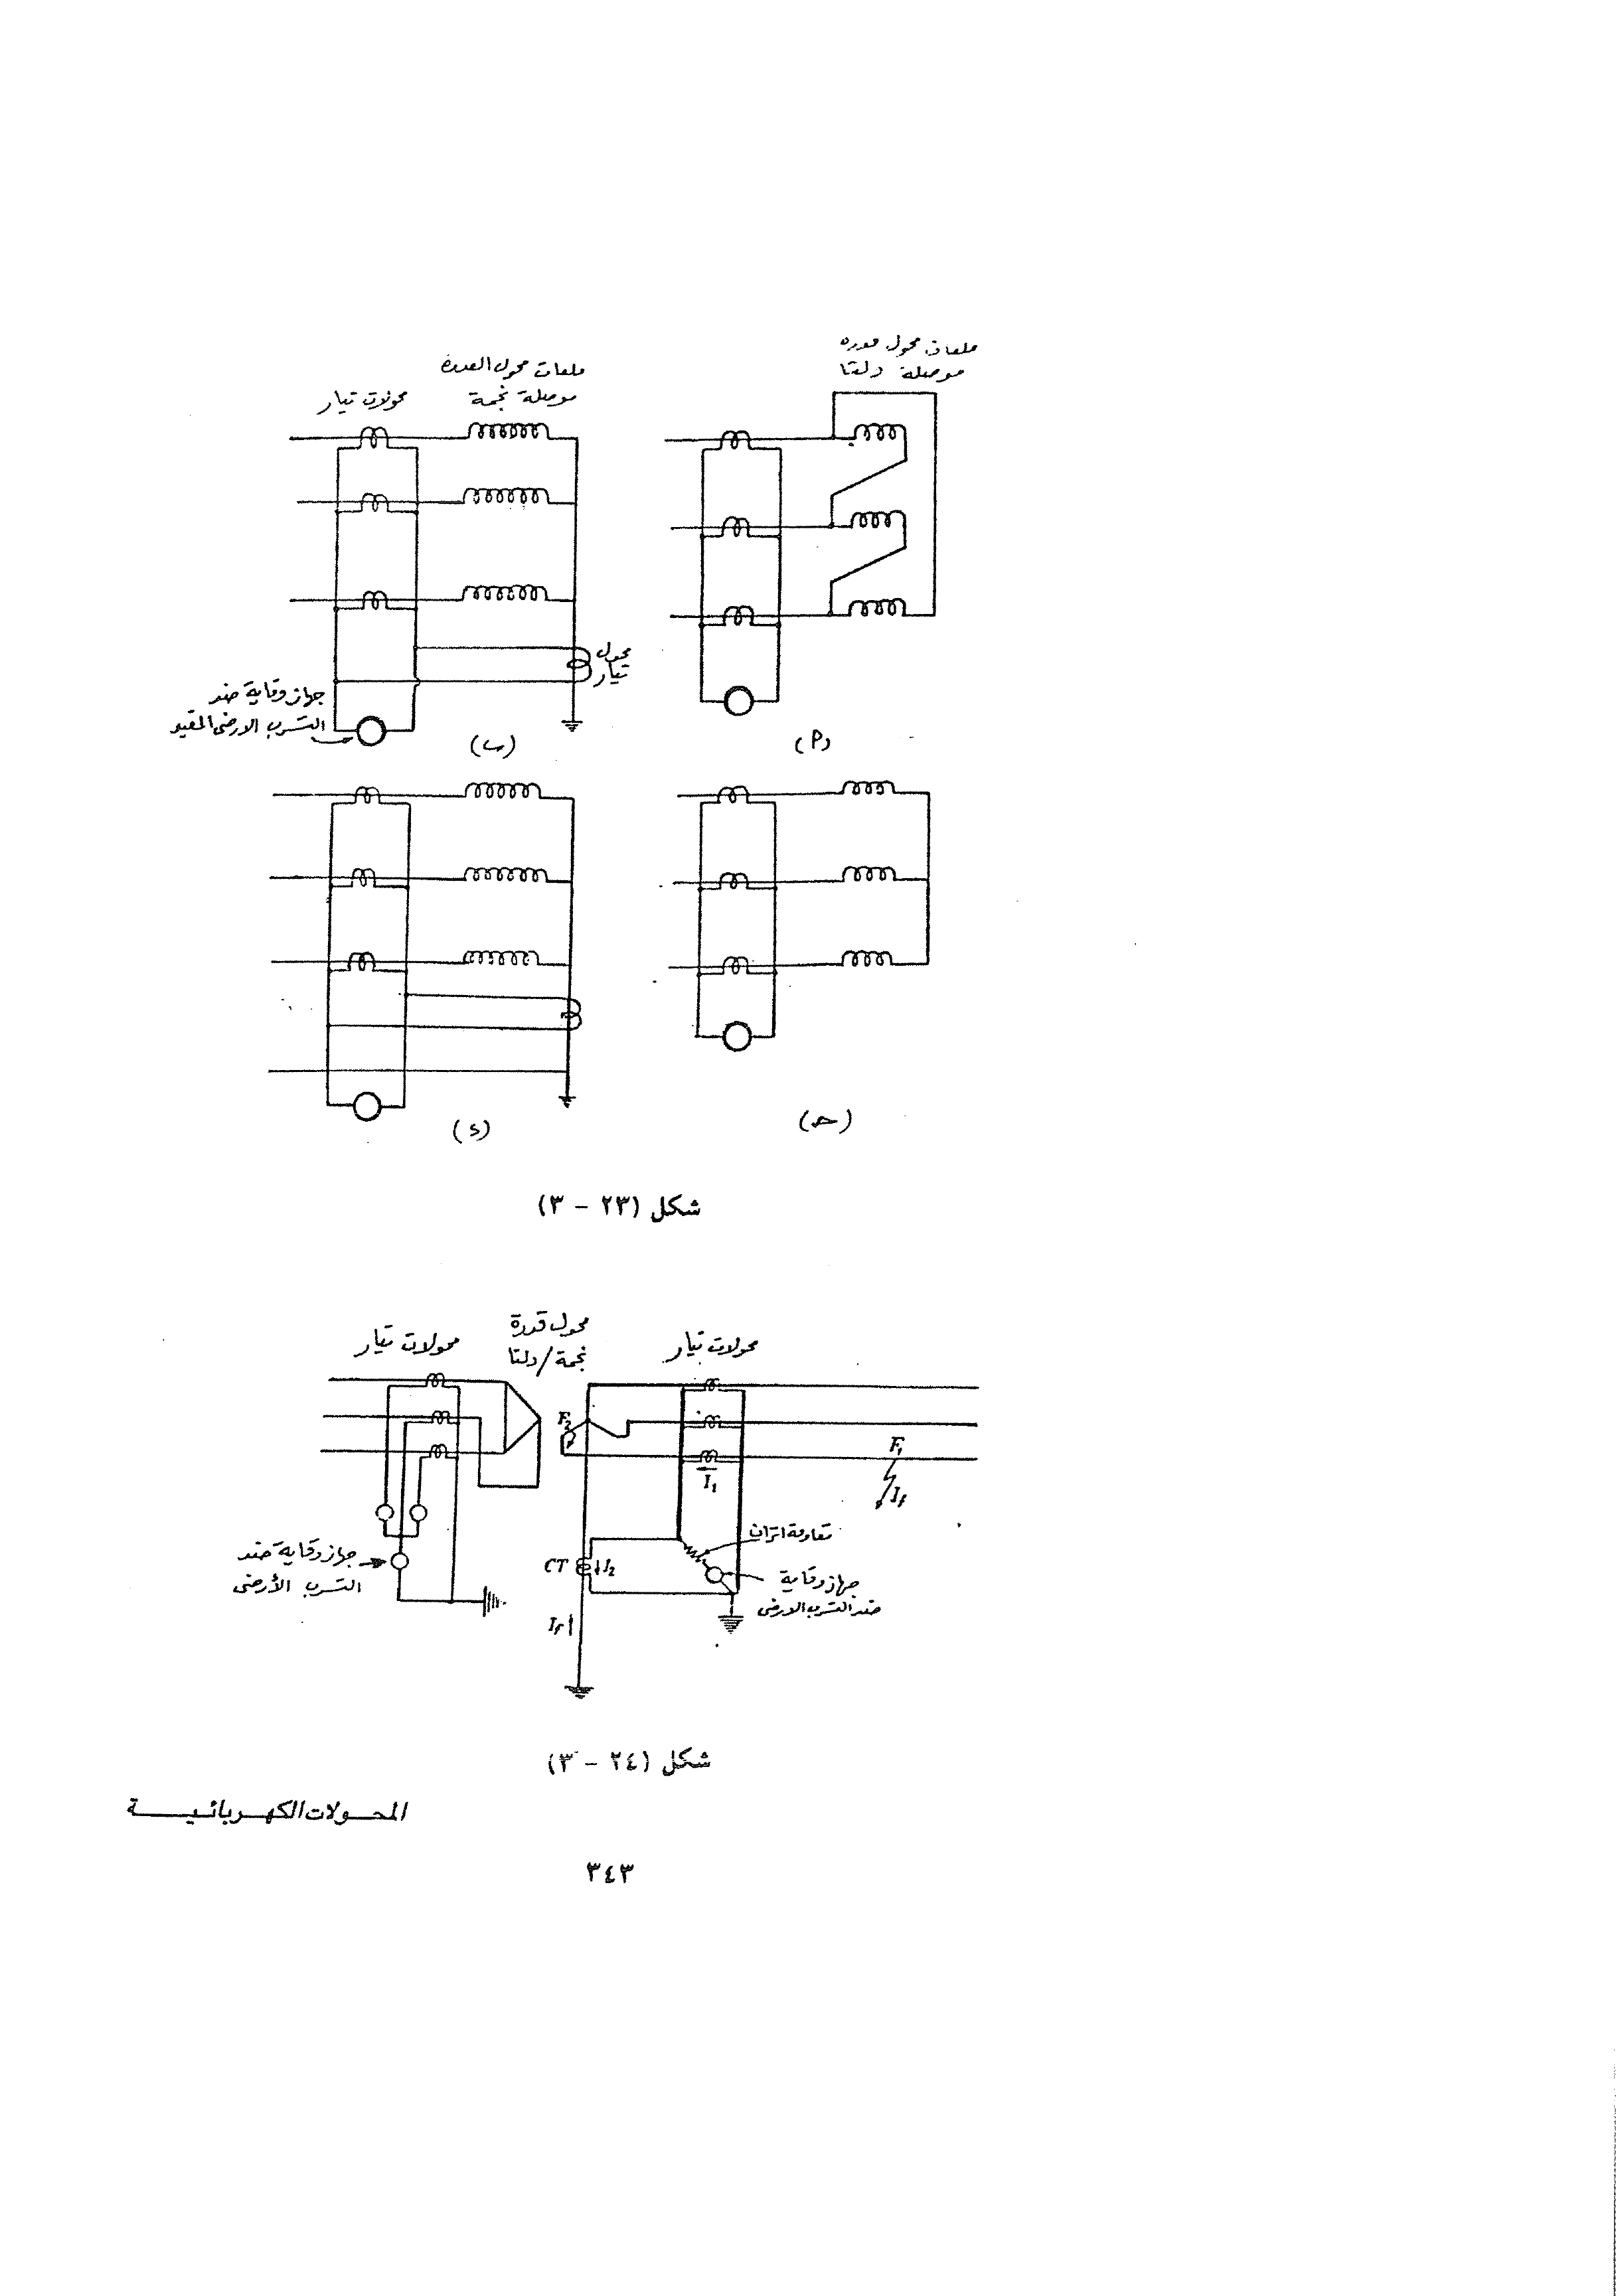 ملفات محول قدره
موصلة دلتا
ملفات محول القدرة
موصلة نجمة
محولات تيار
محول
تيار
جهاز وقاية ضد
التسرب الارضى المقيد
(أ)
(ب)
(حـ)
(د)
شكل (٢٣ – ٣)
محولات تيار
محول قدرة
نجمة/دلتا
محولات تيار
F₂
F₁
I₁
If
مقاومة اتزان
CT
I₂
جهاز وقاية
ضد التسرب الارضى
جهاز وقاية ضد
التسرب الأرضى
If
شكل (٢٤ – ٣)
المحولات الكهربائية
٣٤٣